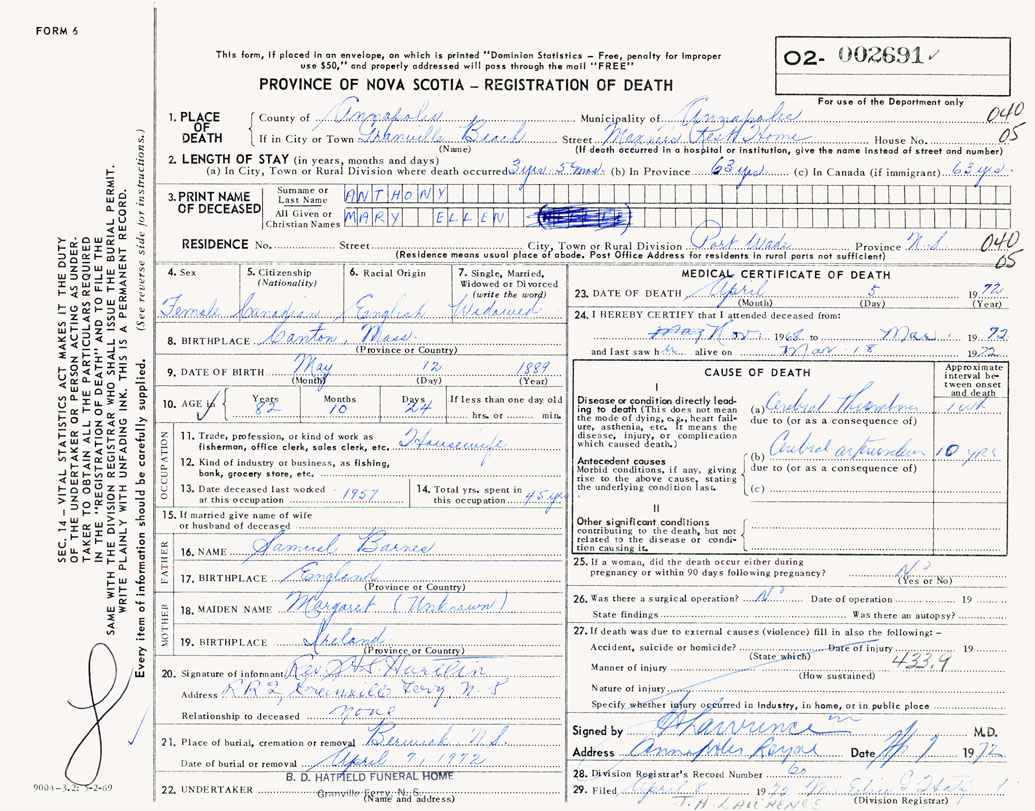 FORM 6
This form, if placed in an envelope, on which is printed "Dominion Statistics – Free, penalty for improper
use $50," and properly addressed will pass through the mail "FREE"
PROVINCE OF NOVA SCOTIA – REGISTRATION OF DEATH
O2- 002691
For use of the Department only
040
05
1. PLACE OF DEATH
County of Annapolis Municipality of Annapolis
If in City or Town Granville Beach Street Rest Home House No.
(Name) (If death occurred in a hospital or institution, give the name instead of street and number)
2. LENGTH OF STAY (in years, months and days)
(a) In City, Town or Rural Division where death occurred 3 yrs. 5 mos. (b) In Province 63 yrs (c) In Canada (if immigrant) 63 yrs.
3. PRINT NAME OF DECEASED
Surname or Last Name ANTHONY
All Given or Christian Names MARY ELLEN
RESIDENCE No. Street City, Town or Rural Division Port Wade Province N.S.
(Residence means usual place of abode. Post Office Address for residents in rural parts not sufficient)
040
05
4. Sex
Female
5. Citizenship (Nationality)
Canadian
6. Racial Origin
English
7. Single, Married, Widowed or Divorced (write the word)
Widowed
8. BIRTHPLACE Canton, Mass.
(Province or Country)
9. DATE OF BIRTH May 12 1889
(Month) (Day) (Year)
10. AGE in Years Months Days If less than one day old
82 10 24 hrs. or min.
OCCUPATION
11. Trade, profession, or kind of work as fisherman, office clerk, sales clerk, etc. Housewife
12. Kind of industry or business, as fishing, bank, grocery store, etc.
13. Date deceased last worked at this occupation 1957
14. Total yrs. spent in this occupation 45 yrs
15. If married give name of wife or husband of deceased
FATHER
16. NAME Samuel Barnes
17. BIRTHPLACE England
(Province or Country)
MOTHER
18. MAIDEN NAME Margaret (Unknown)
19. BIRTHPLACE Ireland
(Province or Country)
20. Signature of informant Rev
Address RR2, Granville Ferry, N.S
Relationship to deceased none
21. Place of burial, cremation or removal Berwick N.S.
Date of burial or removal April 7, 1972
22. UNDERTAKER B. D. HATFIELD FUNERAL HOME
Granville Ferry, N. S.
(Name and address)
MEDICAL CERTIFICATE OF DEATH
23. DATE OF DEATH April 5 1972
(Month) (Day) (Year)
24. I HEREBY CERTIFY that I attended deceased from:
Nov. 1968 to Mar 1972
and last saw her alive on Mar 18 1972
CAUSE OF DEATH
Approximate interval between onset and death
I
Disease or condition directly leading to death (This does not mean the mode of dying, e.g., heart failure, asthenia, etc. It means the disease, injury, or complication which caused death.)
(a) Cerebral thrombosis 1 wk
due to (or as a consequence of)
Antecedent causes
Morbid conditions, if any, giving rise to the above cause, stating the underlying condition last.
(b) Cerebral 10 yrs
due to (or as a consequence of)
(c)
II
Other significant conditions
contributing to the death, but not related to the disease or condition causing it.
25. If a woman, did the death occur either during pregnancy or within 90 days following pregnancy? No
(Yes or No)
26. Was there a surgical operation? No Date of operation 19
State findings Was there an autopsy?
27. If death was due to external causes (violence) fill in also the following: –
Accident, suicide or homicide? Date of injury 19
(State which)
433.9
Manner of injury
(How sustained)
Nature of injury
Specify whether injury occurred in Industry, in home, or in public place
Signed by Lawrence M.D.
Address Annapolis Royal Date 7 1972
28. Division Registrar's Record Number 60
29. Filed April 8 1972 Mrs
J. A. LAWRENCE (Division Registrar)
SEC. 14 – VITAL STATISTICS ACT MAKES IT THE DUTY
OF THE UNDERTAKER OR PERSON ACTING AS UNDER-
TAKER TO OBTAIN ALL THE PARTICULARS REQUIRED
IN THE "REGISTRATION OF DEATH" AND TO FILE THE
SAME WITH THE DIVISION REGISTRAR WHO SHALL ISSUE THE BURIAL PERMIT.
WRITE PLAINLY WITH UNFADING INK. THIS IS A PERMANENT RECORD.
Every item of information should be carefully supplied. (See reverse side for instructions.)
9004-3.2: 5-2-69